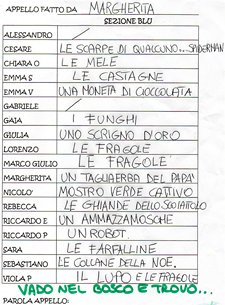 APPELLO FATTO DA MARGHERITA
SEZIONE BLU
ALESSANDRO /
CESARE LE SCARPE DI QUALCUNO...SPIDERMAN
CHIARA O LE MELE
EMMA S LE CASTAGNE
EMMA V UNA MONETA DI CIOCCOLATA
GABRIELE /
GAIA I FUNGHI
GIULIA UNO SCRIGNO D'ORO
LORENZO LE FRAGOLE
MARCO GIULIO LE FRAGOLE
MARGHERITA UN TAGLIAERBA DEL PAPA'
NICOLO' MOSTRO VERDE CATTIVO
REBECCA LE GHIANDE DELLO SCOIATTOLO
RICCARDO E UN AMMAZZAMOSCHE
RICCARDO P UN ROBOT.
SARA LE FARFALLINE
SEBASTIANO LE COLLANE DELLA NOE.
VIOLA P IL LUPO E LE FRAGOLE
VADO NEL BOSCO E TROVO...
PAROLA APPELLO: